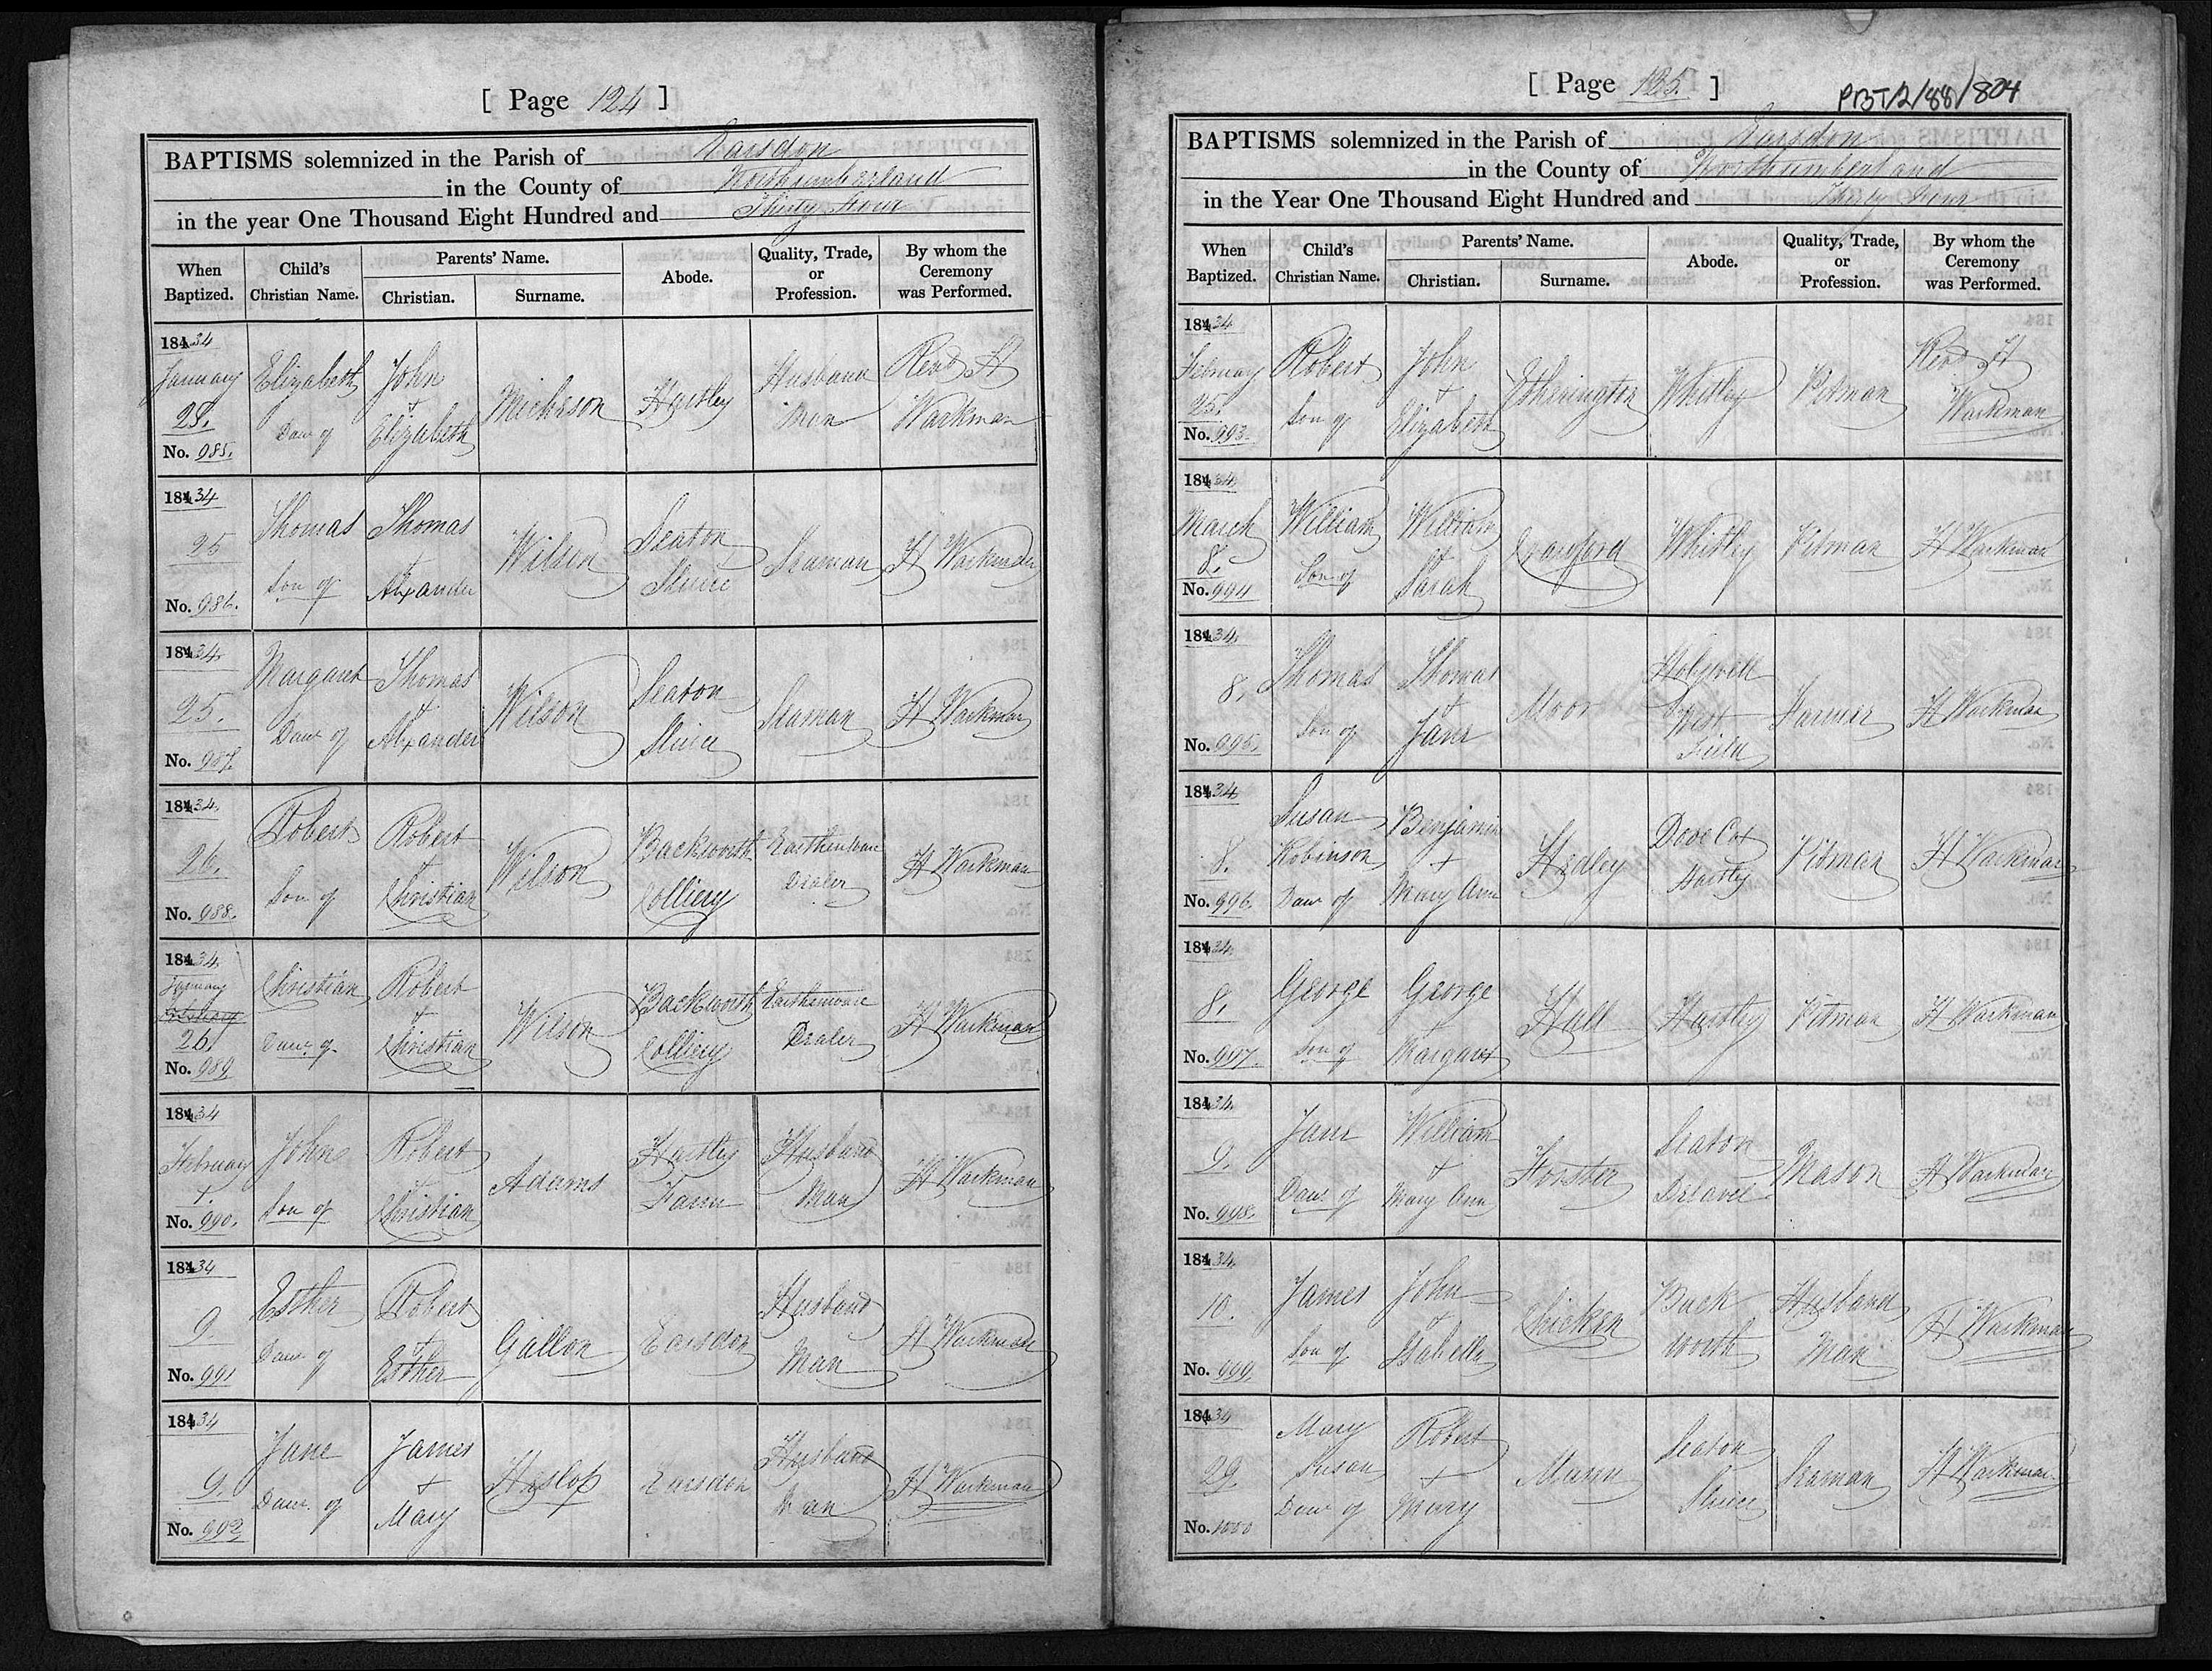 [ Page 124 ]
BAPTISMS solemnized in the Parish of Earsdon
in the County of Northumberland
in the year One Thousand Eight Hundred and Thirty Four
When Baptized.
Child's Christian Name.
Parents' Name.
Christian.
Surname.
Abode.
Quality, Trade, or Profession.
By whom the Ceremony was Performed.
184 34
January
25.
No. 985.
Elizabeth
Daur of
John
+
Elizabeth
Hartley
Husband
Man
Revd H
Warkman
184 34
25
No. 986.
Thomas
Son of
Thomas
+
Alexander
Wilson
Seaton
Sluice
Seaman
H Warkman
184 34.
25.
No. 987.
Margaret
Daur of
Thomas
+
Alexander
Wilson
Seaton
Sluice
Seaman
H Warkman
184 34.
26.
No. 988.
Robert
Son of
Robert
+
Christian
Wilson
Backworth
Colliery
Earthenware
Dealer
H Warkman
184 34
January
26.
No. 989
Christian
Daur of
Robert
+
Christian
Wilson
Backworth
Colliery
Earthenware
Dealer
H Warkman
184 34
February
No. 990.
John
Son of
Robert
+
Christian
Adams
Hartley
Farm
Husband
Man
H Warkman
184 34
9.
No. 991
Esther
Daur of
Robert
+
Esther
Gallon
Earsdon
Husband
Man
H Warkman
184 34
9.
No. 992
Jane
Daur. of
James
+
Mary
Heslop
Earsdon
Husband
Man
H Warkman
[ Page 125. ]
PBT/2/88/804
BAPTISMS solemnized in the Parish of Earsdon
in the County of Northumberland
in the Year One Thousand Eight Hundred and Thirty Four
When Baptized.
Child's Christian Name.
Parents' Name.
Christian.
Surname.
Abode.
Quality, Trade, or Profession.
By whom the Ceremony was Performed.
184 34
February
25.
No. 993.
Robert
Son of
John
+
Elizabeth
Etherington
Whitley
Pitman
Revd H
Warkman
184 34.
March
8.
No. 994
William
Son of
William
+
Sarah
Crawford
Whitley
Pitman
H Warkman
184 34.
8.
No. 995.
Thomas
Son of
Thomas
+
Jane
Moor
Holywell
West
Field
Farmer
H Warkman
184 34
8.
No. 996.
Susan
Robinson
Daur of
Benjamin
+
Mary Ann
Hedley
Dove Cot
Hartley
Pitman
H Warkman
184 34.
8.
No. 997.
George
Son of
George
+
Margaret
Hall
Hartley
Pitman
H Warkman
184 34.
9.
No. 998.
Jane
Daur of
William
+
Mary Ann
Forster
Seaton
Delavel
Mason
H Warkman
184 34.
10.
No. 999.
James
Son of
John
+
Isabella
Chicken
Back
worth
Husband
Man
H Warkman
184 34
29.
No. 1000
Mary
Susan
Daur of
Robert
+
Mary
Mann
Seaton
Sluice
Seaman
H Warkman